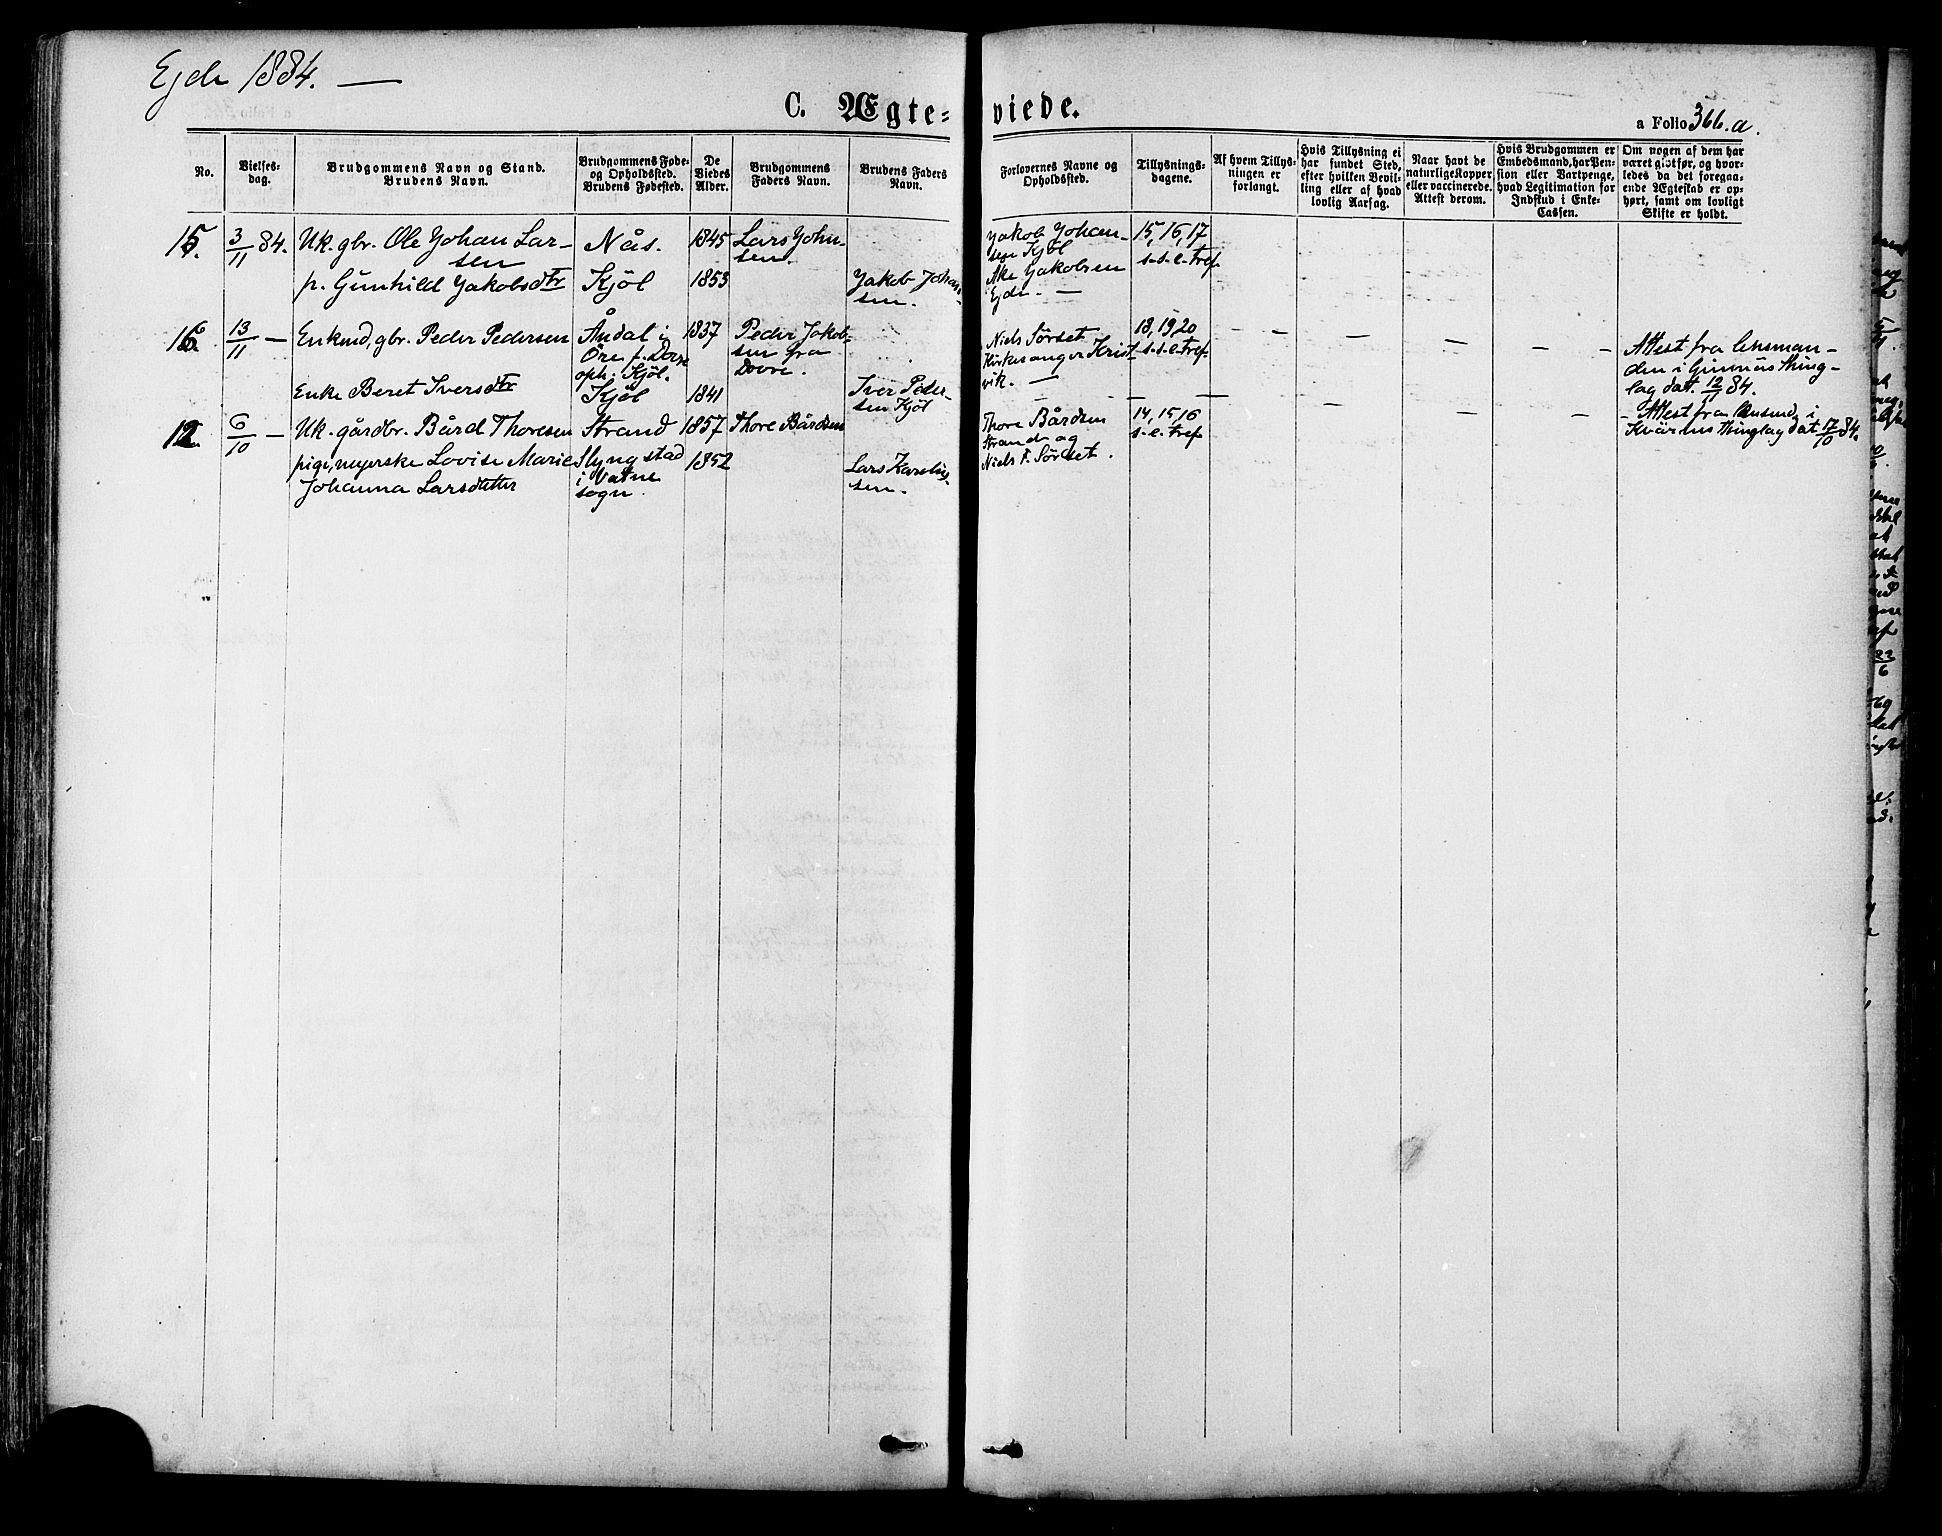 Ejde 1884. —
C. Ægte= viede.
a Folio 366.a.
No.
Vielses-
dag.
Brudgommens Navn og Stand.
Brudens Navn.
Brudgommens Føde-
og Opholdssted.
Brudens Fødested.
De
Viedes
Alder.
Brudgommens
Faders Navn.
Brudens Faders
Navn.
Forlovernes Navne og
Opholdssted.
Tillysnings-
dagene.
Af hvem Tillys-
ningen er
forlangt.
Hvis Tillysning ei
har fundet Sted,
efter hvilken Bevil-
ling eller af hvad
lovlig Aarsag.
Naar havt de
naturlige Kopper
eller vaccinerede.
Attest derom.
Hvis Brudgommen er
Embedsmand, har Pen-
sion eller Vartpenge,
hvad Legitimation for
Indskud i Enke-
Cassen.
Om nogen af dem har
været gift før, og hvor-
ledes da det foregaa-
ende Ægteskab er op-
hørt, samt om lovligt
Skifte er holdt.
15. 3/11 84. Uk. gbr. Ole Johan Lar-
sen
Nås. 1845 Lars John-
sen.
p. Gunhild Jakobsdtr Kjöl 1853 Jakob Johan-
sen.
Jakob Johan-
sen Kjöl
Jakobsen
Ejde. —
15, 16, 17
s. e. tref.
16. 13/11 — Enkmd, gbr. Peder Pedersen Åndal i
Öre f. Dovre
oph. Kjöl. 1837 Peder Jakob-
sen fra
Dovre.
Enke Beret Iversdtr Kjöl 1841 Iver Peder-
sen Kjöl
Niels Sörset
Kirkesanger Krist-
vik. —
18, 19 20
s. e. tref.
Attest fra lensman-
den i Gimnæs Thing-
lag dat. 12/11 84.
12. 6/10 — Uk. gårdbr. Bård Thoresen Strand 1857 Thore Bårdsen
pige, mejerske Lovise Marie
Johanna Larsdatter
Slyngstad
i Vatne
sogn. 1852 Lars Karelius-
sen.
Thore Bårdsen
Strand og
Niels F. Sörset.
14, 15, 16
s. e. tref.
Attest fra lensmd. i
Kværnes Thinglag dat 17/10 84.